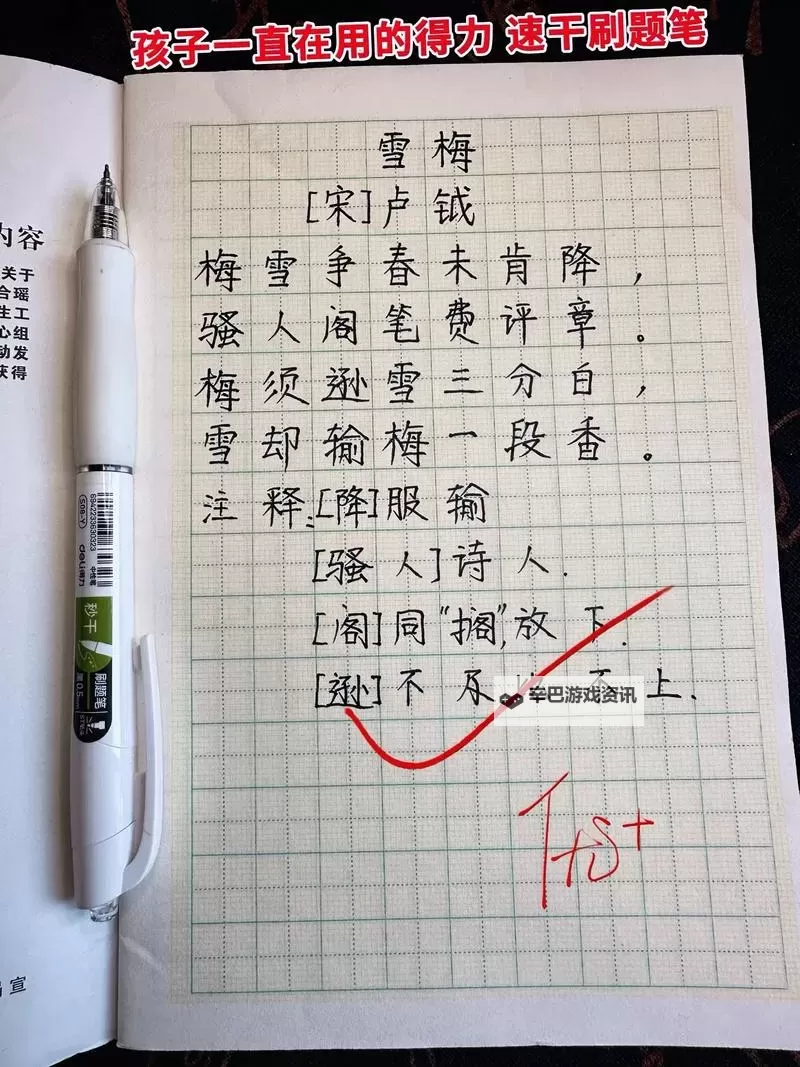 孩子一直在用的得力 速干刷题笔
内容
关于
合瑶
生工
心组
动发
获得
宣
雪梅
[宋]卢钺
梅雪争春未肯降，
骚人阁笔费评章。
梅须逊雪三分白，
雪却输梅一段香。
注释:[降]服输
[骚人]诗人.
[阁]同“搁”,放下.
[逊]不及, 不上.
辛巴游戏资讯
优+
6942233630323
S08-Y
中性笔
deli得力
秒干
刷题笔
黑0.5mm